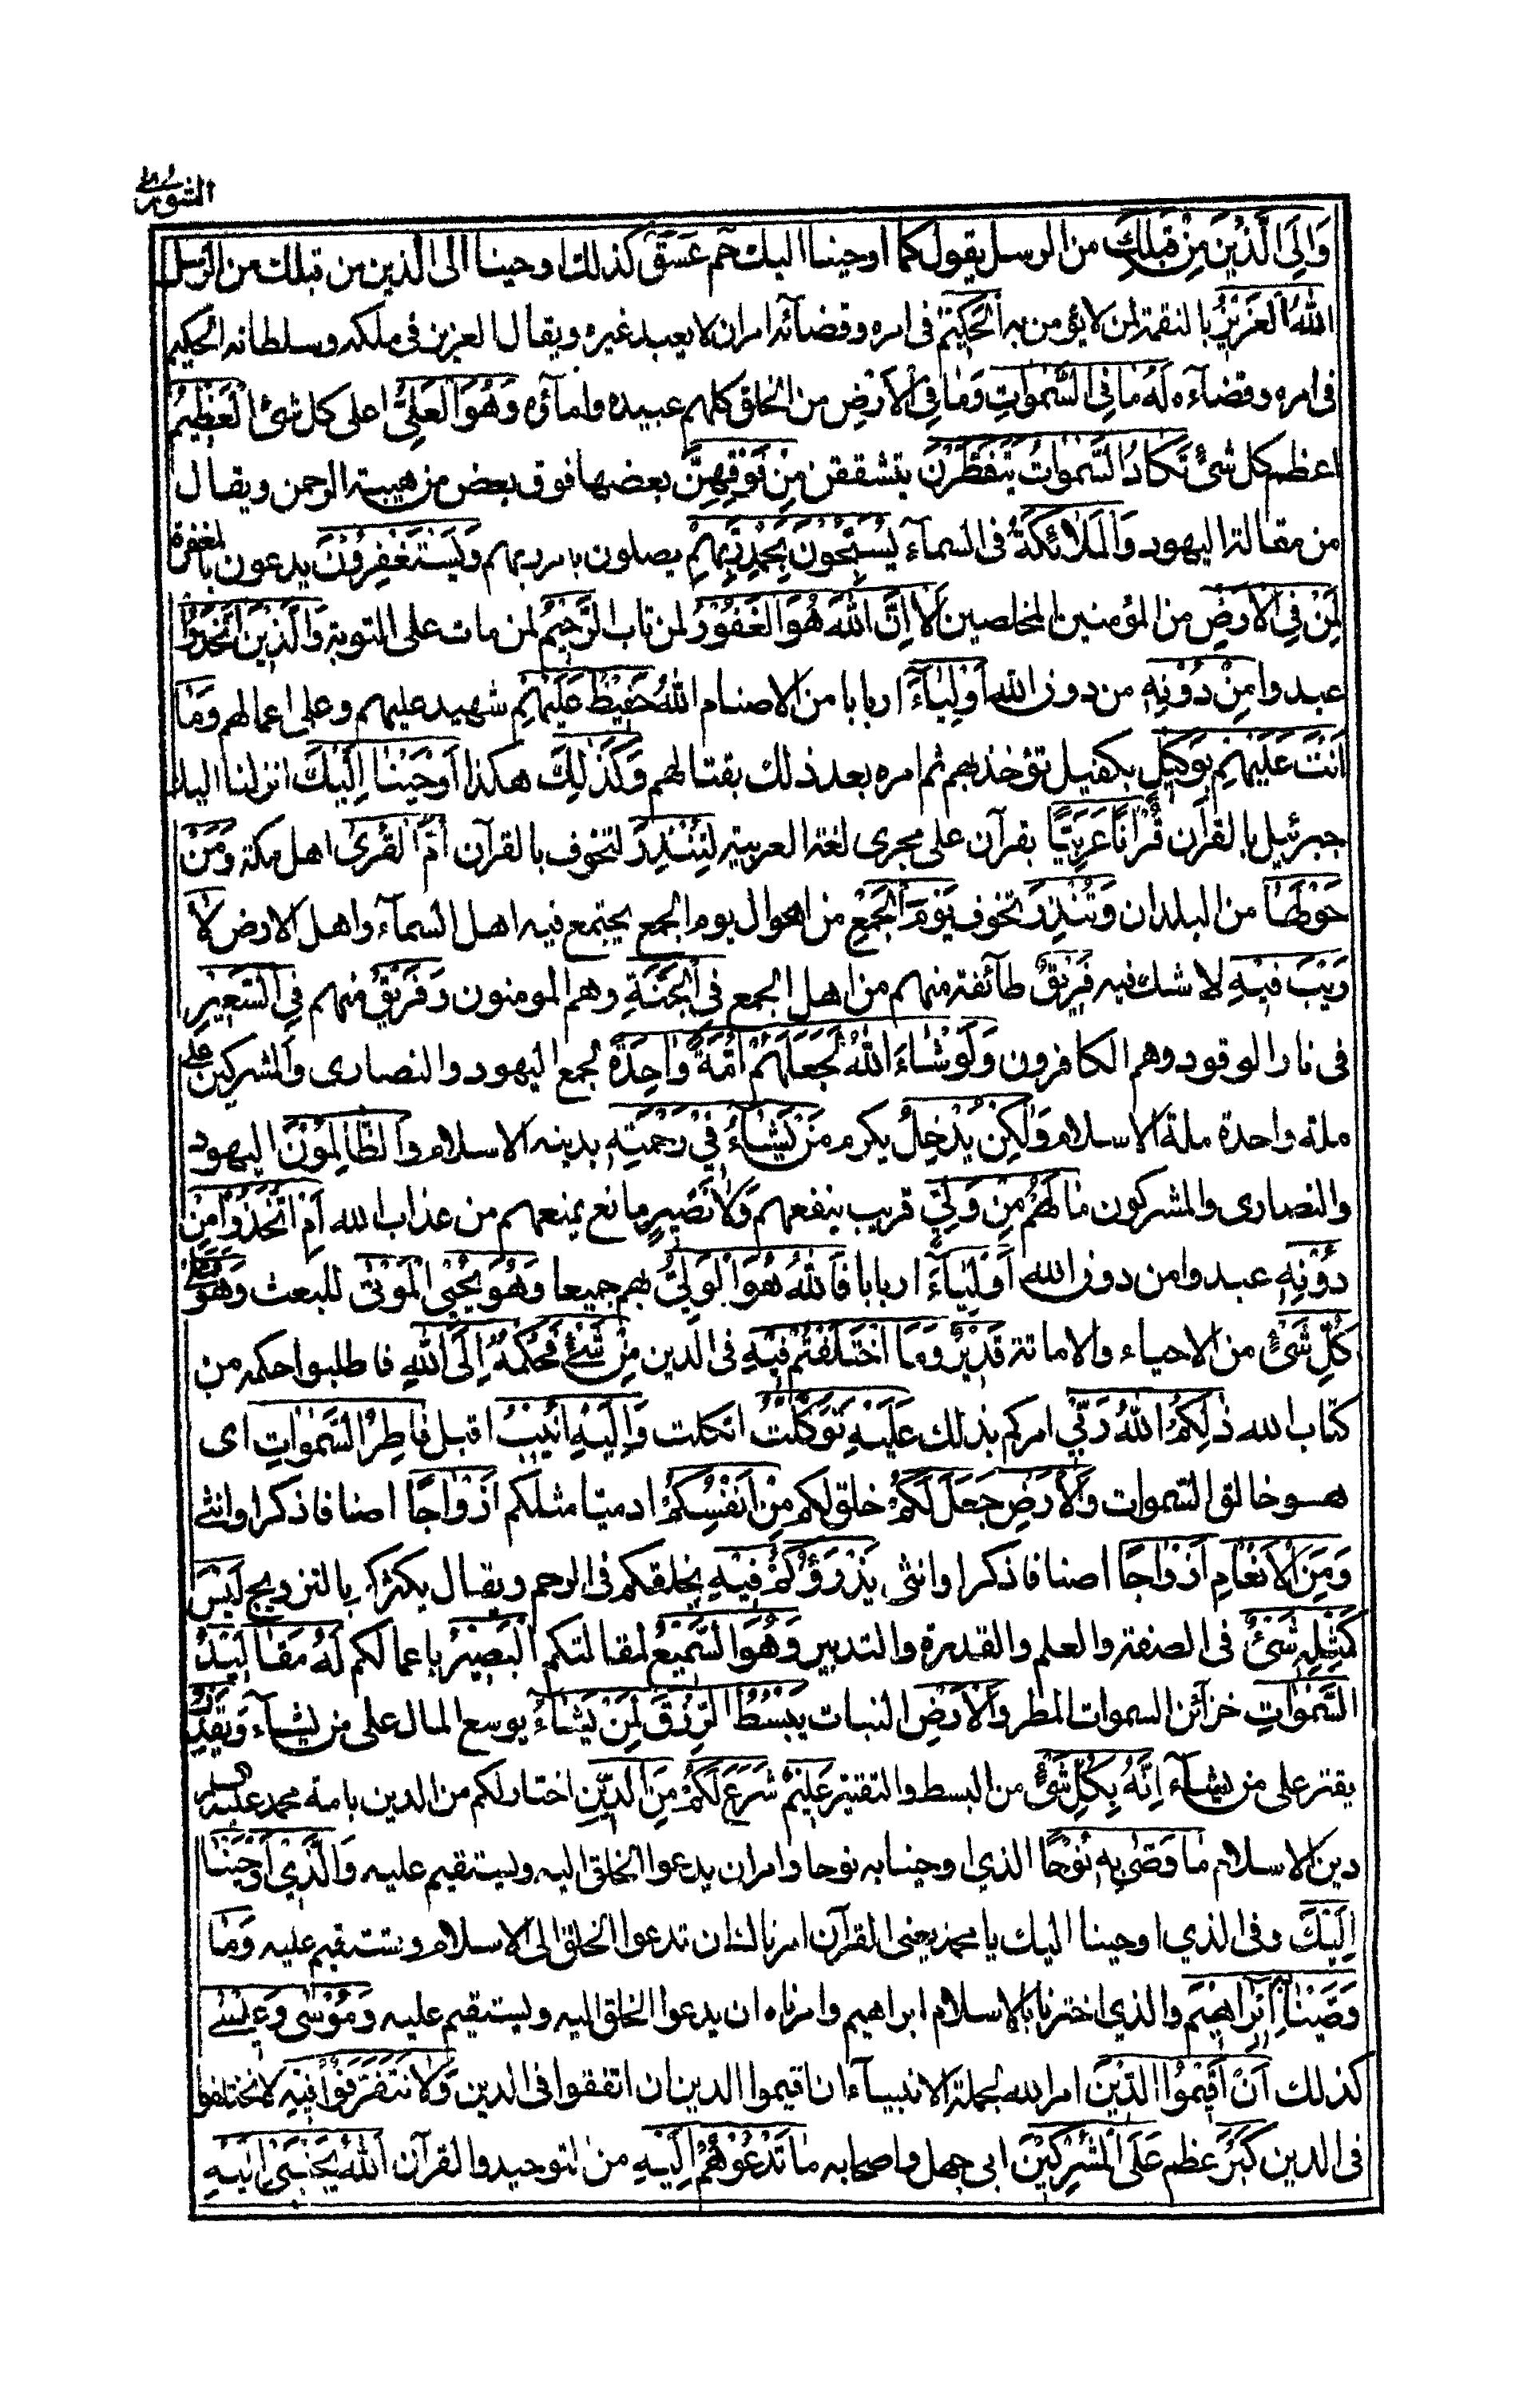 الشورى
وَاِلَى الَّذِيْنَ مِنْ قَبْلِكَ من الرسل يقول كما اوحينا اليك حٓم عٓسٓقٓ كذلك اوحينا الى الذين من قبلك من الرسل
اللّٰهُ الْعَزِيْزُ بالنقمة لمن لا يؤمن به الْحَكِيْمُ فى امره وقضآئه امر ان لا يعبد غيره ويقال العزيز فى ملكه وسلطانه الحكيم
فى امره وقضآءه لَهٗ مَا فِى السَّمٰوٰتِ وَمَا فِى الْاَرْضِ من الخلق كلهم عبيده وامآؤه وَهُوَ الْعَلِىُّ اعلى كل شئ الْعَظِيْمُ
اعظم كل شئ تَكَادُ السَّمٰوٰتُ يَتَفَطَّرْنَ يتشققن مِنْ فَوْقِهِنَّ بعضها فوق بعض من هيبة الرحمن ويقال
من مقالة اليهود وَالْمَلٰٓئِكَةُ فى السمآء يُسَبِّحُوْنَ بِحَمْدِ رَبِّهِمْ يصلون بامر ربهم وَيَسْتَغْفِرُوْنَ يدعون بالمغفرة
لِمَنْ فِى الْاَرْضِ من المؤمنين المخلصين اَلَآ اِنَّ اللّٰهَ هُوَ الْغَفُوْرُ لمن تاب الرَّحِيْمُ لمن مات على التوبة وَالَّذِيْنَ اتَّخَذُوْا
عبدوا مِنْ دُوْنِهٖ من دون الله اَوْلِيَآءَ اربابا من الاصنام اللّٰهُ حَفِيْظٌ عَلَيْهِمْ شهيد عليهم وعلى اعمالهم وَمَآ
اَنْتَ عَلَيْهِمْ بِوَكِيْلٍ بكفيل تؤخذ بهم ثم امره بعد ذلك بقتالهم وَكَذٰلِكَ هكذا اَوْحَيْنَآ اِلَيْكَ انزلنا اليك
جبرئيل بالقرآن قُرْاٰنًا عَرَبِيًّا بقرآن على مجرى لغة العربية لِتُنْذِرَ لتخوف بالقرآن اُمَّ الْقُرٰى اهل مكة وَمَنْ
حَوْلَهَا من البلدان وَتُنْذِرَ تخوف يَوْمَ الْجَمْعِ من اهوال يوم الجمع يجتمع فيه اهل السمآء واهل الارض لَا
رَيْبَ فِيْهِ لا شك فيه فَرِيْقٌ طآئفة منهم من اهل الجمع فِى الْجَنَّةِ وهم المومنون وَفَرِيْقٌ منهم فِى السَّعِيْرِ
فى نار الوقود وهم الكافرون وَلَوْ شَآءَ اللّٰهُ لَجَعَلَهُمْ اُمَّةً وَّاحِدَةً لجمع اليهود والنصارى والمشركين على
ملة واحدة ملة الاسلام وَلٰكِنْ يُّدْخِلُ يكرم مَنْ يَّشَآءُ فِىْ رَحْمَتِهٖ بدينه الاسلام وَالظّٰلِمُوْنَ اليهود
والنصارى والمشركون مَا لَهُمْ مِّنْ وَّلِىٍّ قريب ينفعهم وَّلَا نَصِيْرٍ مانع يمنعهم من عذاب الله اَمِ اتَّخَذُوْا مِنْ
دُوْنِهٖٓ عبدوا من دون الله اَوْلِيَآءَ اربابا فَاللّٰهُ هُوَ الْوَلِىُّ بهم جميعا وَهُوَ يُحْىِ الْمَوْتٰى للبعث وَهُوَ عَلٰى
كُلِّ شَىْءٍ من الاحياء والاماتة قَدِيْرٌ وَمَا اخْتَلَفْتُمْ فِيْهِ فى الدين مِنْ شَىْءٍ فَحُكْمُهٗٓ اِلَى اللّٰهِ فاطلبوا حكمه من
كتاب الله ذٰلِكُمُ اللّٰهُ رَبِّىْ امركم بذلك عَلَيْهِ تَوَكَّلْتُ اتكلت وَاِلَيْهِ اُنِيْبُ اقبل فَاطِرُ السَّمٰوٰتِ اى
هو خالق السموات وَالْاَرْضِ جَعَلَ لَكُمْ خلق لكم مِّنْ اَنْفُسِكُمْ ادميا مثلكم اَزْوَاجًا اصنافا ذكرا وانثى
وَّمِنَ الْاَنْعَامِ اَزْوَاجًا اصنافا ذكرا وانثى يَذْرَؤُكُمْ فِيْهِ يخلقكم فى الرحم ويقال يكثركم بالتزويج لَيْسَ
كَمِثْلِهٖ شَىْءٌ فى الصفة والعلم والقدرة والتدبير وَهُوَ السَّمِيْعُ لمقالتكم الْبَصِيْرُ باعمالكم لَهٗ مَقَالِيْدُ
السَّمٰوٰتِ خزآئن السموات المطر وَالْاَرْضِ النبات يَبْسُطُ الرِّزْقَ لِمَنْ يَّشَآءُ يوسع المال على من يشآء وَيَقْدِرُ
يقتر على من يشآء اِنَّهٗ بِكُلِّ شَىْءٍ من البسط والتقتير عَلِيْمٌ شَرَعَ لَكُمْ مِّنَ الدِّيْنِ اختار لكم من الدين يا امة محمد عليه السلام
دين الاسلام مَا وَصّٰى بِهٖ نُوْحًا الذي اوحينا به نوحا وامر ان يدعوا الخلق اليه ويستقيم عليه وَّالَّذِىْٓ اَوْحَيْنَآ
اِلَيْكَ وفى الذي اوحينا اليك يا محمد يعنى القرآن امرناك ان تدعوا الخلق الى الاسلام وتستقيم عليه وَمَا
وَصَّيْنَا بِهٖٓ اِبْرٰهِيْمَ والذي اخترنا بالاسلام ابراهيم وامرناه ان يدعوا الخلق اليه ويستقيم عليه وَمُوْسٰى وَعِيْسٰٓى
كذلك اَنْ اَقِيْمُوا الدِّيْنَ امر الله لجملة الانبيآء ان اقيموا الدين ان اتفقوا فى الدين وَلَا تَتَفَرَّقُوْا فِيْهِ لا تختلفوا
فى الدين كَبُرَ عظم عَلَى الْمُشْرِكِيْنَ ابى جهل واصحابه مَا تَدْعُوْهُمْ اِلَيْهِ من التوحيد والقرآن اللّٰهُ يَجْتَبِىْٓ اِلَيْهِ